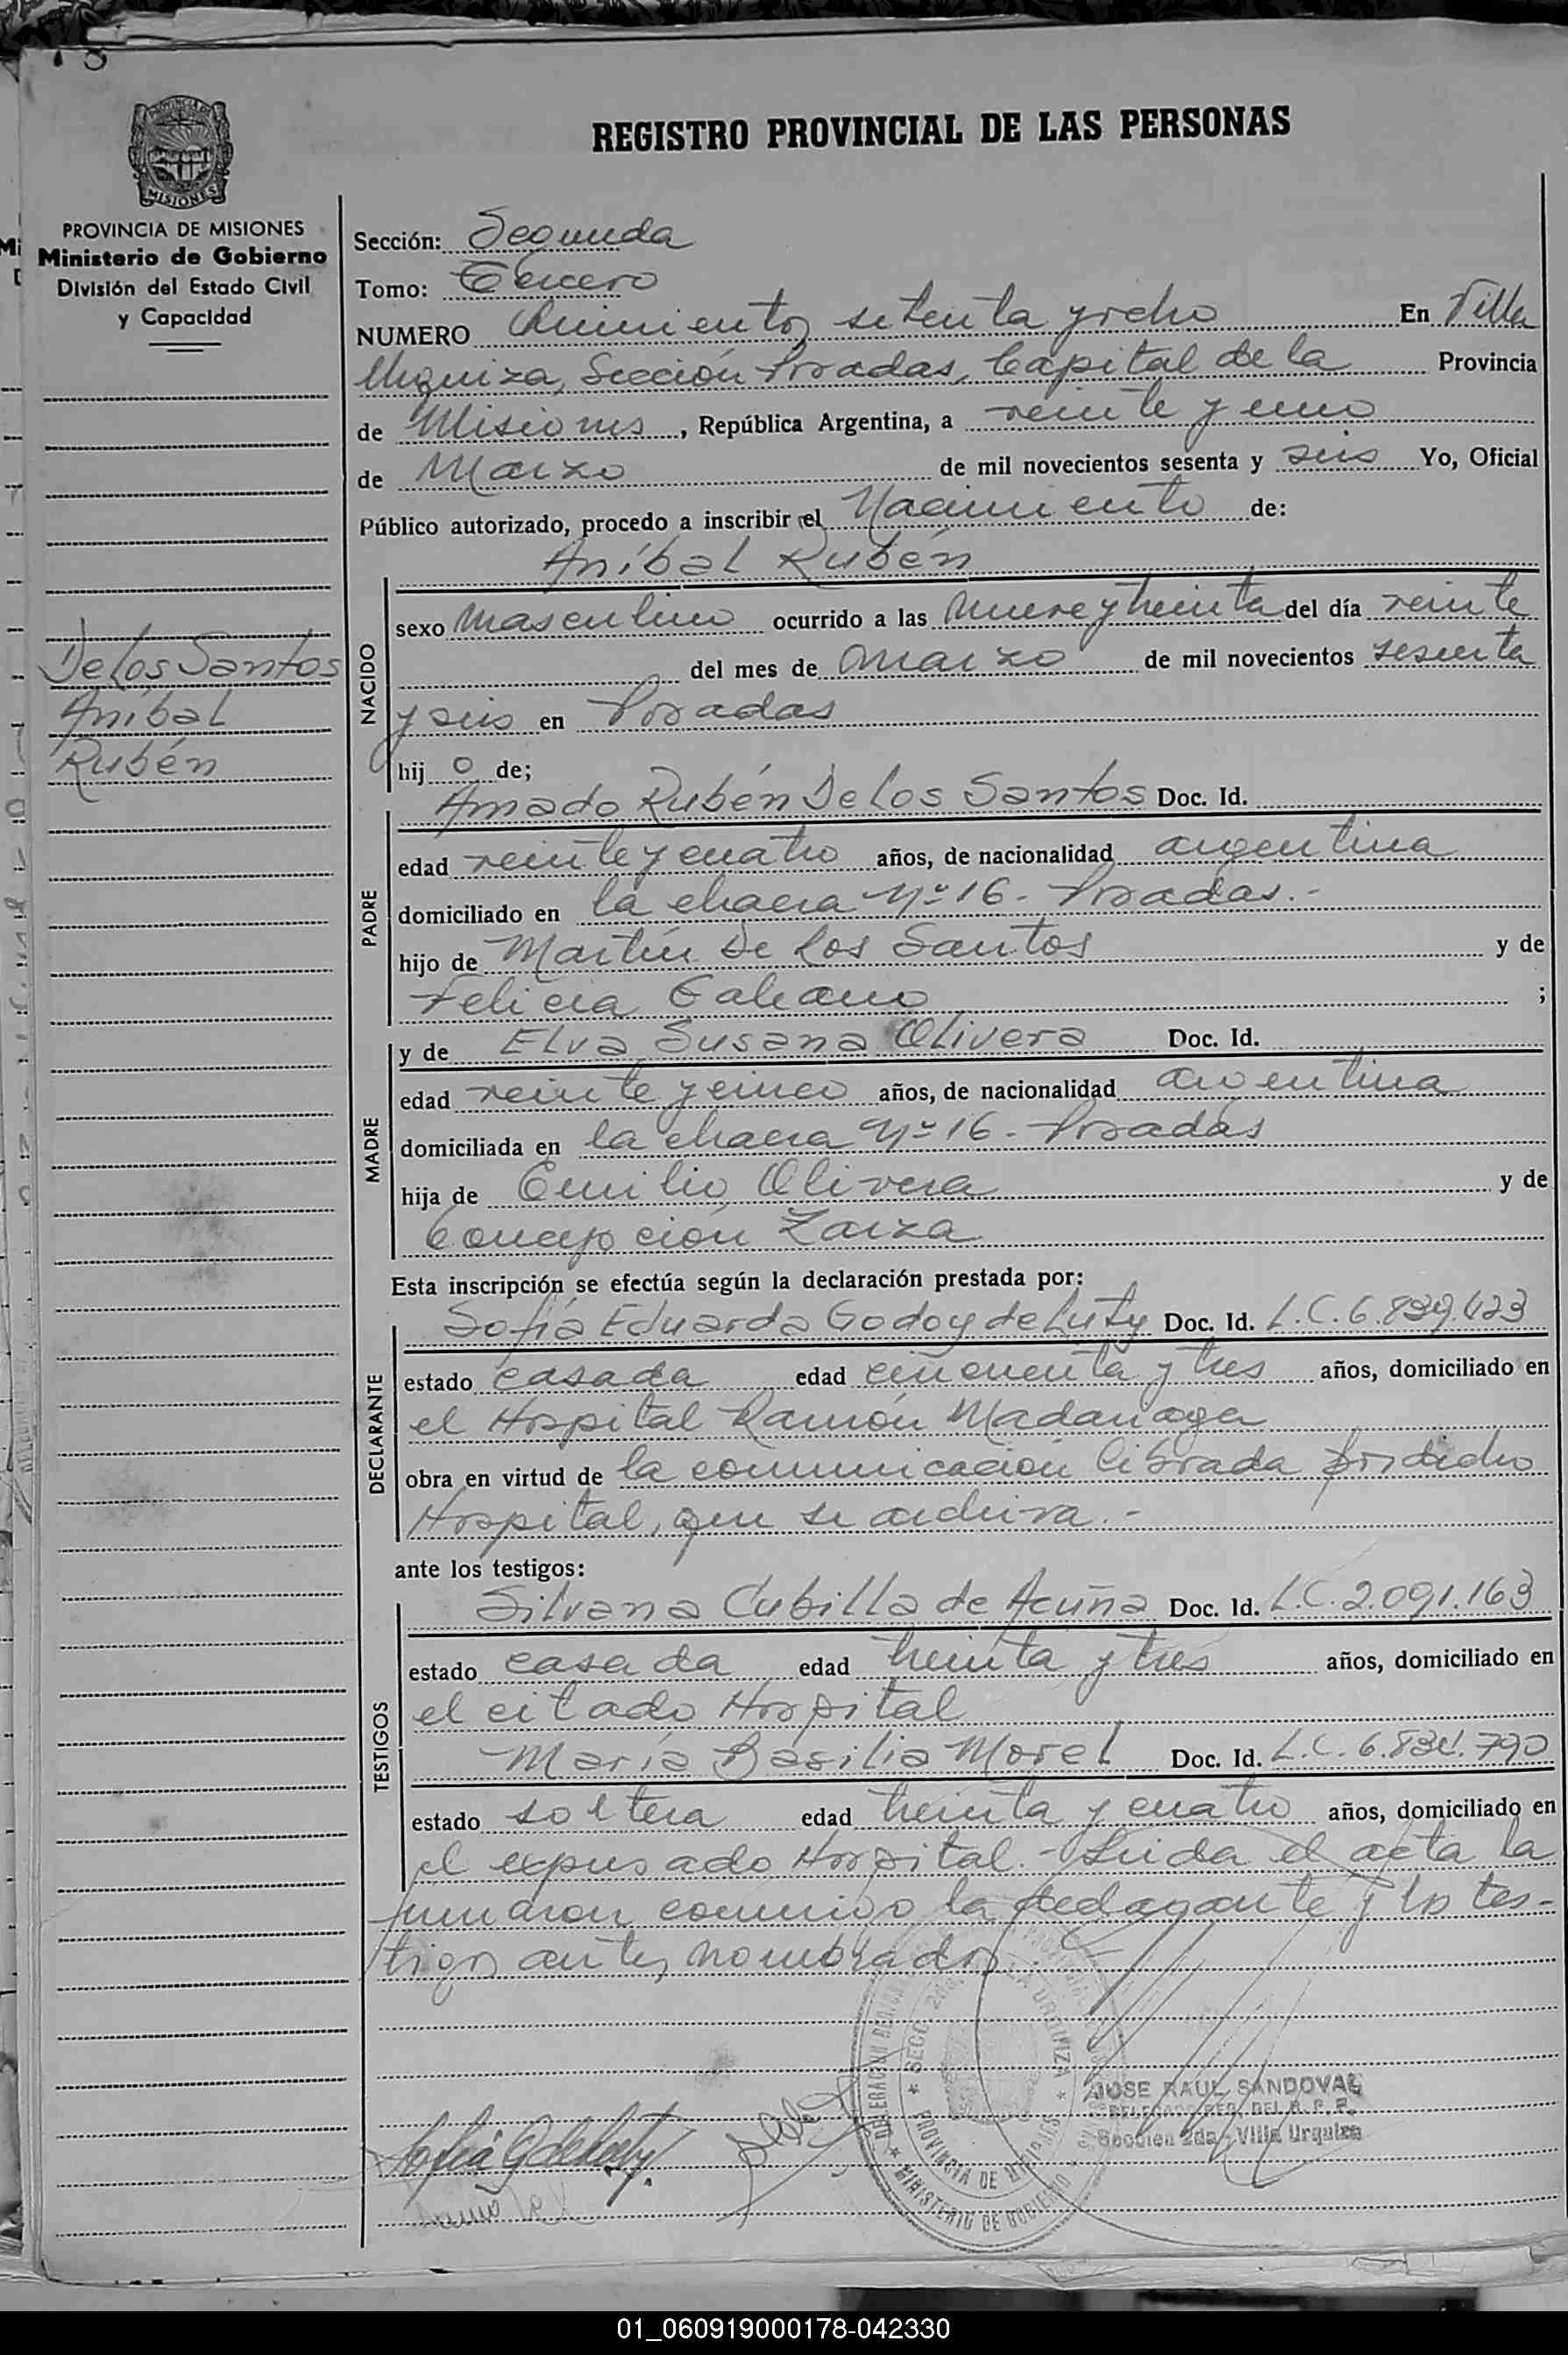 REGISTRO PROVINCIAL DE LAS PERSONAS
MISIONES
PROVINCIA DE MISIONES
Ministerio de Gobierno
División del Estado Civil
y Capacidad
De los Santos
Aníbal
Rubén
Sección: Segunda
Tomo: Tercero
NUMERO Quinientos setenta y ocho En Villa
Urquiza, Sección Posadas, Capital de la Provincia
de Misiones, República Argentina, a veinte y uno
de Marzo de mil novecientos sesenta y seis Yo, Oficial
Público autorizado, procedo a inscribir el Nacimiento de:
Aníbal Rubén
NACIDO
sexo masculino ocurrido a las nueve y treinta del día veinte
del mes de marzo de mil novecientos sesenta
y seis en Posadas
hij o de;
Amado Rubén De los Santos Doc. Id.
PADRE
edad veinte y cuatro años, de nacionalidad argentina
domiciliado en la chacra Nº 16 - Posadas.-
hijo de Martín De los Santos y de
Felicia Galeano ;
MADRE
y de Elva Susana Olivera Doc. Id.
edad veinte y cinco años, de nacionalidad argentina
domiciliada en la chacra Nº 16 - Posadas
hija de Emilio Olivera y de
Concepción Zarza
Esta inscripción se efectúa según la declaración prestada por:
DECLARANTE
Sofía Eduarda Godoy de Luty Doc. Id. L.C. 6.839.423
estado casada edad cincuenta y tres años, domiciliado en
el Hospital Ramón Madariaga
obra en virtud de la comunicación librada por dicho
Hospital, que se archiva.-
ante los testigos:
TESTIGOS
Silvana Cubilla de Acuña Doc. Id. L.C. 2.091.163
estado casada edad treinta y tres años, domiciliado en
el citado Hospital
María Basilia Morel Doc. Id. L.C. 6.834.790
estado soltera edad treinta y cuatro años, domiciliado en
el expresado Hospital.- Leida el acta la
firmaron conmigo la declarante y los tes-
tigos antes nombrados.
SECC. 2da. URQUIZA
PROVINCIA DE MISIONES
MINISTERIO DE GOBIERNO
JOSE RAUL SANDOVAL
DELEGADO REG. DEL R. P. P.
Sección 2da - Villa Urquiza
Sofía G de Luty
01_060919000178-042330